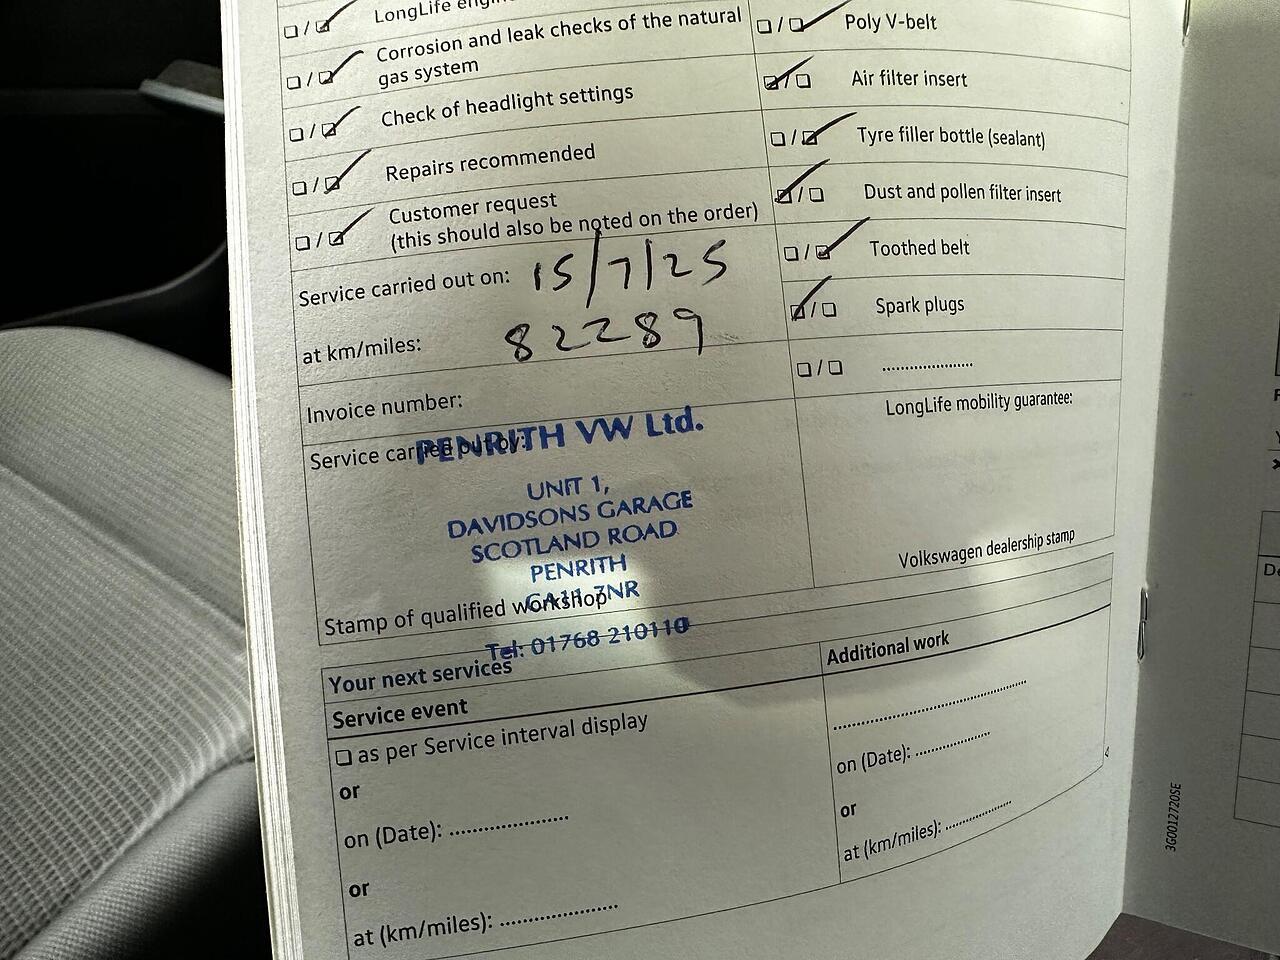 LongLife
Corrosion and leak checks of the natural
gas system
Check of headlight settings
Repairs recommended
Customer request
(this should also be noted on the order)
Service carried out on: 15/7/25
at km/miles: 82289
Invoice number:
Service carried out by:
PENRITH VW Ltd.
UNIT 1,
DAVIDSONS GARAGE
SCOTLAND ROAD
PENRITH
CA11 7NR
Stamp of qualified workshop
Tel: 01768 210110
Poly V-belt
Air filter insert
Tyre filler bottle (sealant)
Dust and pollen filter insert
Toothed belt
Spark plugs
....................
LongLife mobility guarantee:
Volkswagen dealership stamp
Your next services
Service event
as per Service interval display
or
on (Date): ....................
or
at (km/miles): ....................
Additional work
....................
on (Date): ....................
or
at (km/miles): ....................
3G0012720SE